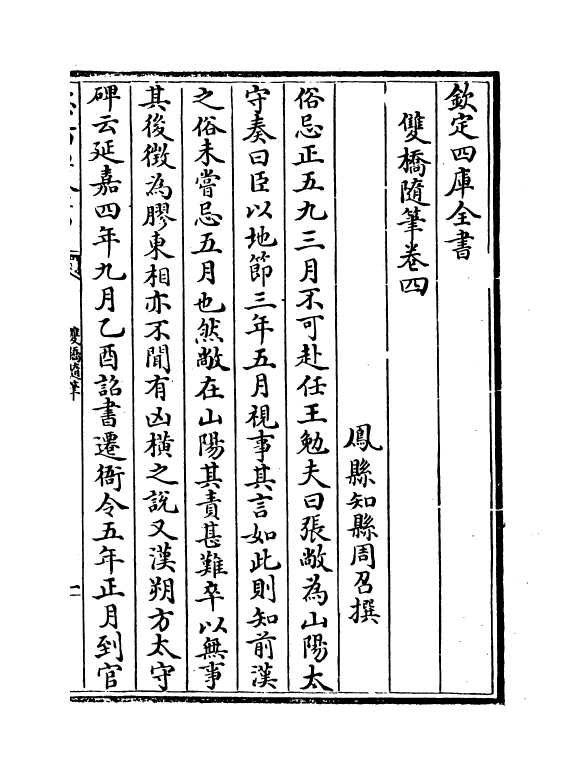 欽定四庫全書
雙橋隨筆卷四
鳳縣知縣周召撰
俗忌正五九三月不可赴任王勉夫曰張敞為山陽太
守奏曰臣以地節三年五月視事其言如此則知前漢
之俗未嘗忌五月也然敞在山陽其責甚難卒以無事
其後徴為膠東相亦不聞有凶橫之說又漢朔方太守
碑云延嘉四年九月乙酉詔書遷衙令五年正月到官
雙橋隨筆